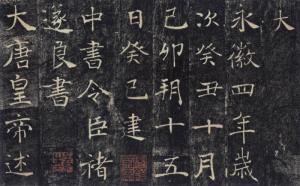 大
永徽四年歲
次癸丑十月
己卯朔十五
日癸巳建
中書令臣褚
遂良書
大唐皇帝述